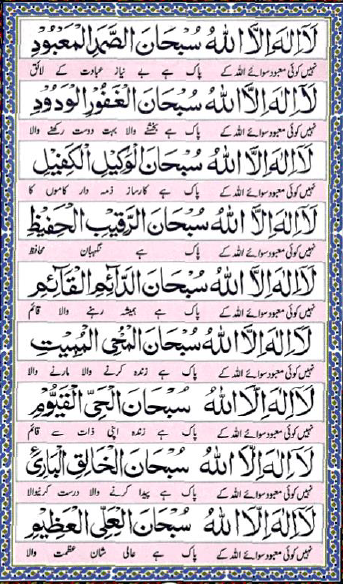 لَآ اِلٰهَ اِلَّا اللهُ سُبْحَانَ الصَّمَدِ الْمَعْبُوْدِ
نہیں کوئی معبود سوائے اللہ کے پاک ہے بے نیاز عبادت کے لائق
لَآ اِلٰهَ اِلَّا اللهُ سُبْحَانَ الْغَفُوْرِ الْوَدُوْدِ
نہیں کوئی معبود سوائے اللہ کے پاک ہے بخشنے والا بہت دوست رکھنے والا
لَآ اِلٰهَ اِلَّا اللهُ سُبْحَانَ الْوَكِيْلِ الْكَفِيْلِ
نہیں کوئی معبود سوائے اللہ کے پاک ہے کارساز ذمہ دار کاموں کا
لَآ اِلٰهَ اِلَّا اللهُ سُبْحَانَ الرَّقِيْبِ الْحَفِيْظِ
نہیں کوئی معبود سوائے اللہ کے پاک ہے نگہبان محافظ
لَآ اِلٰهَ اِلَّا اللهُ سُبْحَانَ الدَّآئِمِ الْقَآئِمِ
نہیں کوئی معبود سوائے اللہ کے پاک ہے ہمیشہ رہنے والا قائم
لَآ اِلٰهَ اِلَّا اللهُ سُبْحَانَ الْمُحْيِ الْمُمِيْتِ
نہیں کوئی معبود سوائے اللہ کے پاک ہے زندہ کرنے والا مارنے والا
لَآ اِلٰهَ اِلَّا اللهُ سُبْحَانَ الْحَيِّ الْقَيُّوْمِ
نہیں کوئی معبود سوائے اللہ کے پاک ہے زندہ اپنی ذات سے قائم
لَآ اِلٰهَ اِلَّا اللهُ سُبْحَانَ الْخَالِقِ الْبَارِئِ
نہیں کوئی معبود سوائے اللہ کے پاک ہے پیدا کرنے والا درست کرنیوالا
لَآ اِلٰهَ اِلَّا اللهُ سُبْحَانَ الْعَلِيِّ الْعَظِيْمِ
نہیں کوئی معبود سوائے اللہ کے پاک ہے عالی شان عظمت والا